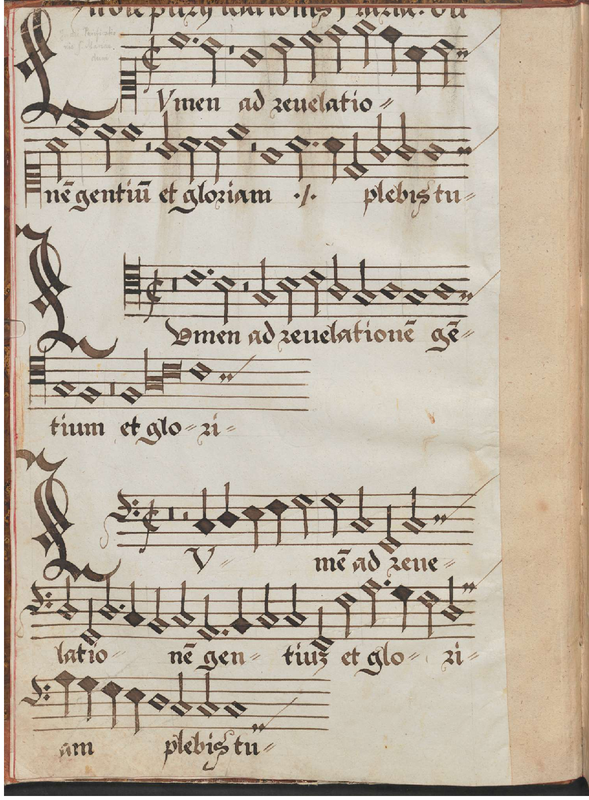 LVmen ad reuelatio
nē gentiū et gloriam ·/· plebis tu
LVmen ad reuelationē gē
tium et glo ri
LV mē ad reue
latio nē gen tiuʒ et glo ri
am plebis tu